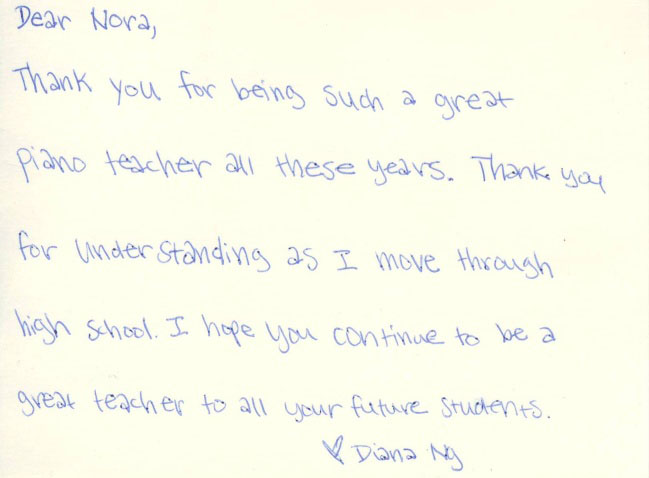 Dear Nora,
Thank you for being such a great
piano teacher all these years. Thank you
for understanding as I move through
high school. I hope you continue to be a
great teacher to all your future students.
♥ Diana Ng